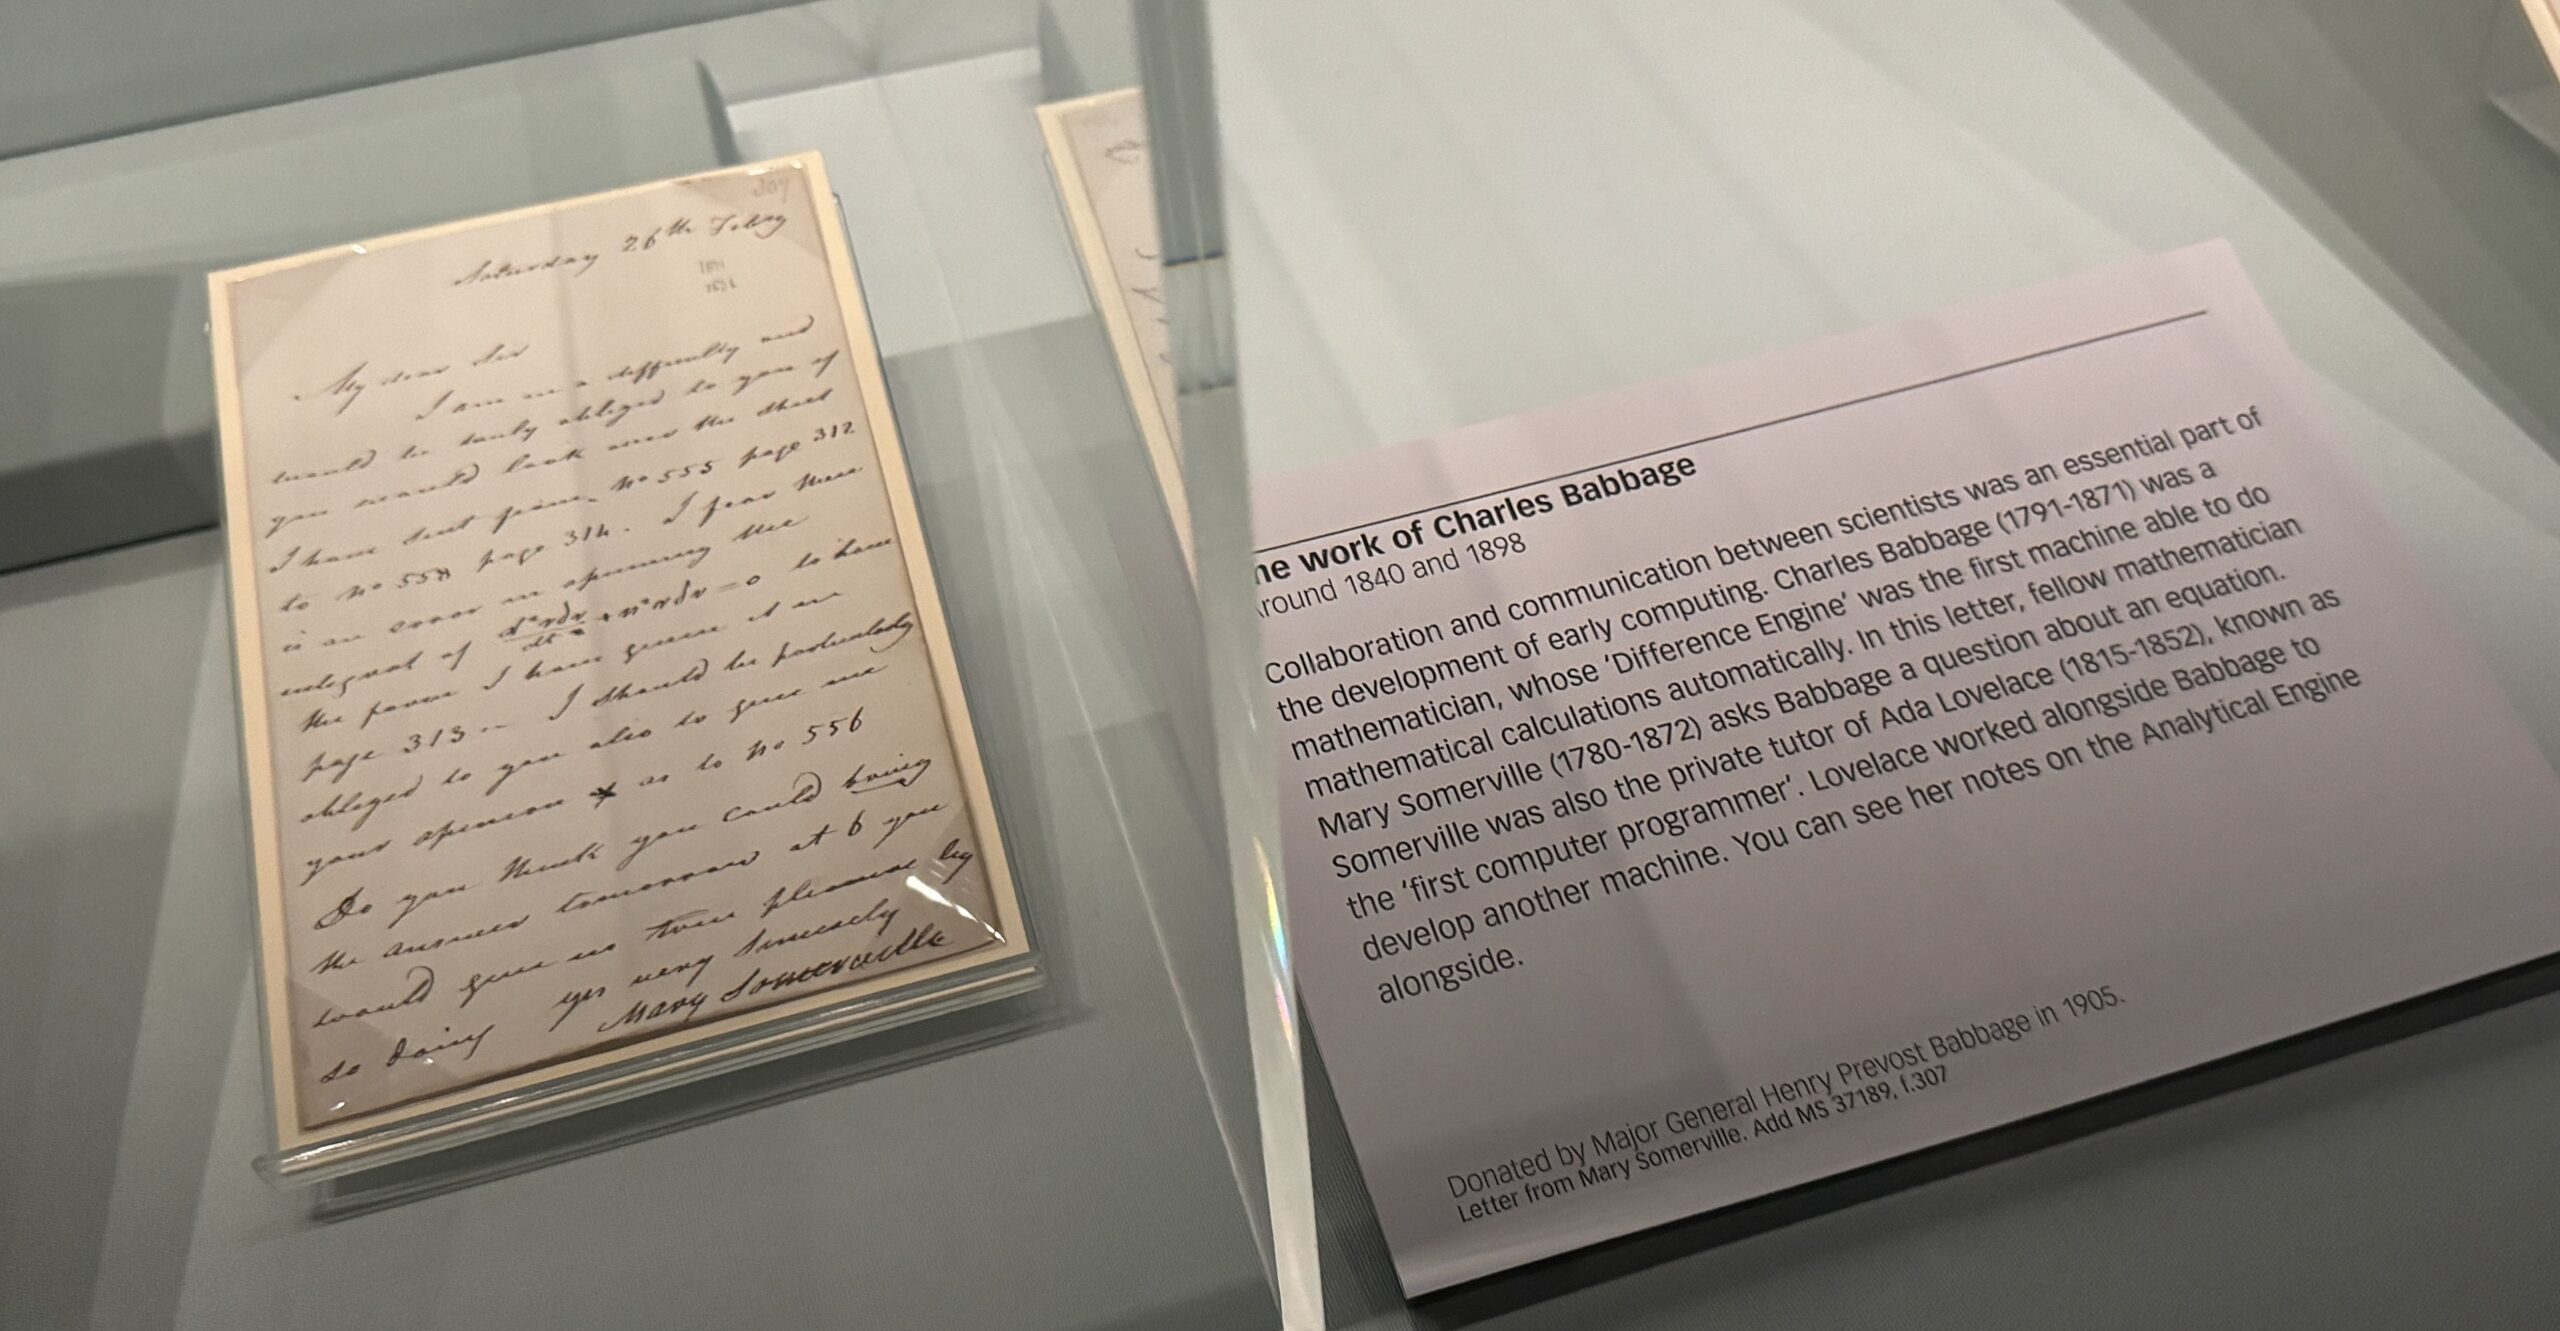 307
Saturday 26th Febry
My dear Sir
I am in a difficulty and
would be truly obliged to you if
you would look over the sheet
I have sent from no 555 page 312
to no 558 page 314. I fear there
is an error in opening the
integral of d²rdv/dt² + n²rdv = 0 to have
the form I have given it in
page 313 – I should be particularly
obliged to you also to give me
your opinion as to no 556
Do you think you could bring
the answer tomorrow at 6 you
would give us true pleasure by
so doing yrs very sincerely
Mary Somerville
he work of Charles Babbage
Around 1840 and 1898
Collaboration and communication between scientists was an essential part of
the development of early computing. Charles Babbage (1791-1871) was a
mathematician, whose ‘Difference Engine’ was the first machine able to do
mathematical calculations automatically. In this letter, fellow mathematician
Mary Somerville (1780-1872) asks Babbage a question about an equation.
Somerville was also the private tutor of Ada Lovelace (1815-1852), known as
the ‘first computer programmer’. Lovelace worked alongside Babbage to
develop another machine. You can see her notes on the Analytical Engine
alongside.
Donated by Major General Henry Prevost Babbage in 1905.
Letter from Mary Somerville. Add MS 37189, f.307